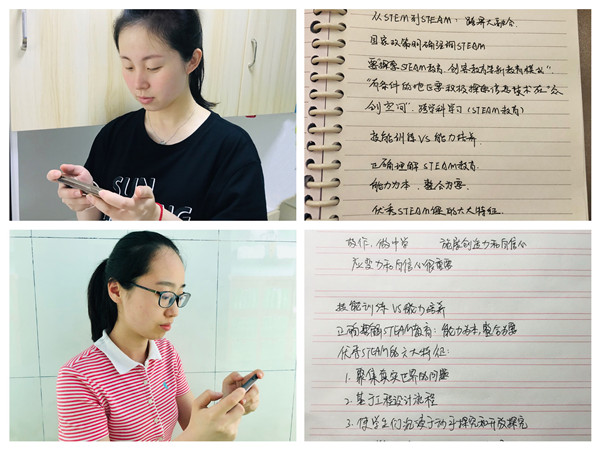 SUN
从STEM到STEAM：跨界大融合
国家政策明确强调STEAM
要"探索STEM教育、创客教育等新教育模式"，
"有条件的地区要积极探索信息技术在"众
创空间"、跨学科学习（STEAM教育）
技能训练VS能力培养
正确理解STEAM教育：
能力为本，整合为要
优秀STEAM课的六大特征
协作，做中学
创造力和自信心
应变力和自信心很重要
技能训练VS能力培养
正确理解STEAM教育：能力为本，整合为要
优秀STEAM的六大特征：
1. 聚焦真实世界的问题
2. 基于工程设计流程
3. 使学生们沉浸于动手探究和开放探究